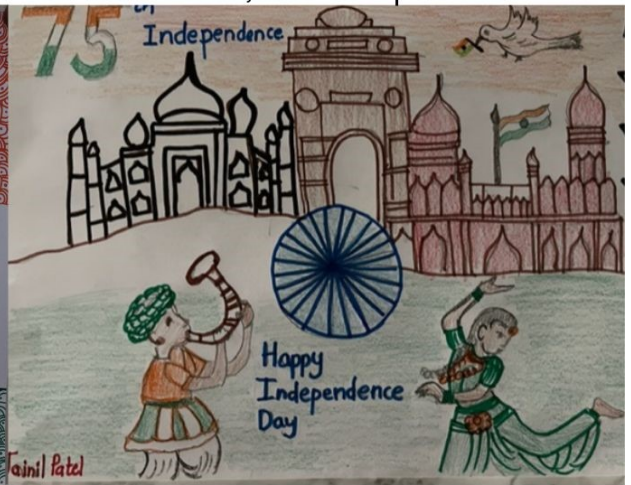 75th
Independence
Happy
Independence
Day
Jainil Patel